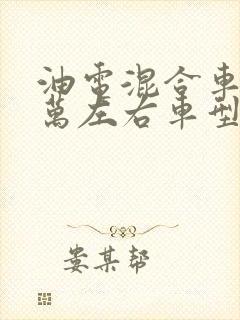 油電混合車
萬左右車型
娄某帮